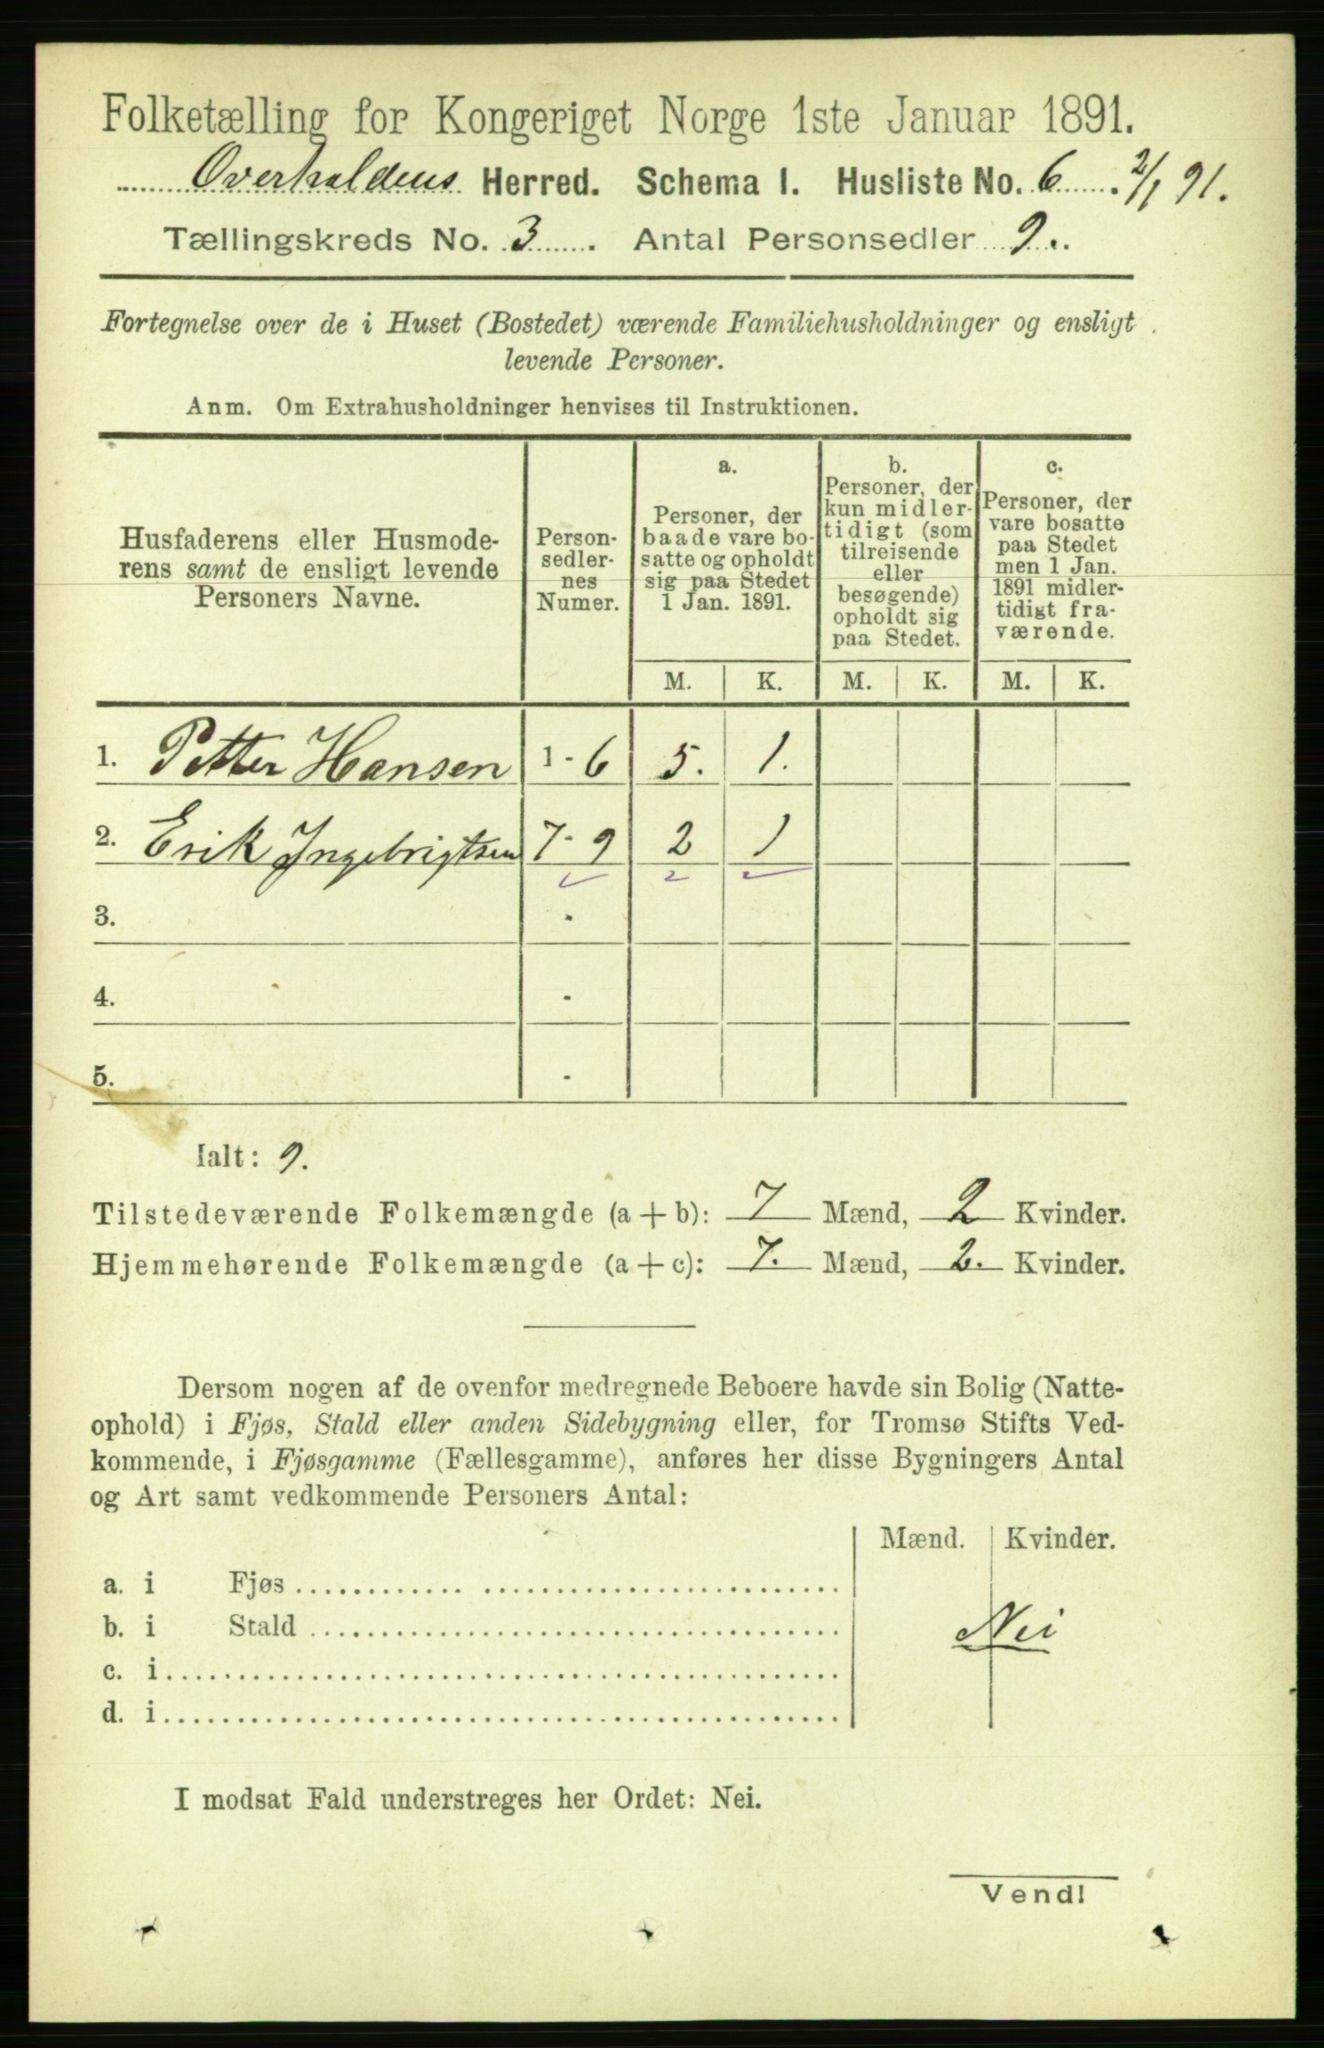 Folketælling for Kongeriget Norge 1ste Januar 1891.
Overhaldens Herred. Schema I. Husliste No. 6. 2/1 91.
Tællingskreds No. 3. Antal Personsedler 9.
Fortegnelse over de i Huset (Bostedet) værende Familiehusholdninger og ensligt
levende Personer.
Anm. Om Extrahusholdninger henvises til Instruktionen.
Husfaderens eller Husmode-
rens samt de ensligt levende
Personers Navne.
Person-
sedler-
nes
Numer.
a.
Personer, der
baade vare bo-
satte og opholdt
sig paa Stedet
1 Jan. 1891.
b.
Personer, der
kun midler-
tidigt (som
tilreisende
eller
besøgende)
opholdt sig
paa Stedet.
c.
Personer, der
vare bosatte
paa Stedet
men 1 Jan.
1891 midler-
tidigt fra-
værende.
M. K. M. K. M. K.
1. Petter Hansen 1 - 6 5. 1.
2. Erik Ingebrigtsen 7 - 9 2 1
3. -
4. -
5. -
Ialt: 9.
Tilstedeværende Folkemængde (a + b): 7 Mænd, 2 Kvinder.
Hjemmehørende Folkemængde (a + c): 7. Mænd, 2. Kvinder.
Dersom nogen af de ovenfor medregnede Beboere havde sin Bolig (Natte-
ophold) i Fjøs, Stald eller anden Sidebygning eller, for Tromsø Stifts Ved-
kommende, i Fjøsgamme (Fællesgamme), anføres her disse Bygningers Antal
og Art samt vedkommende Personers Antal:
Mænd. Kvinder.
a. i Fjøs
b. i Stald
Nei
c. i
d. i
I modsat Fald understreges her Ordet: Nei.
Vend!